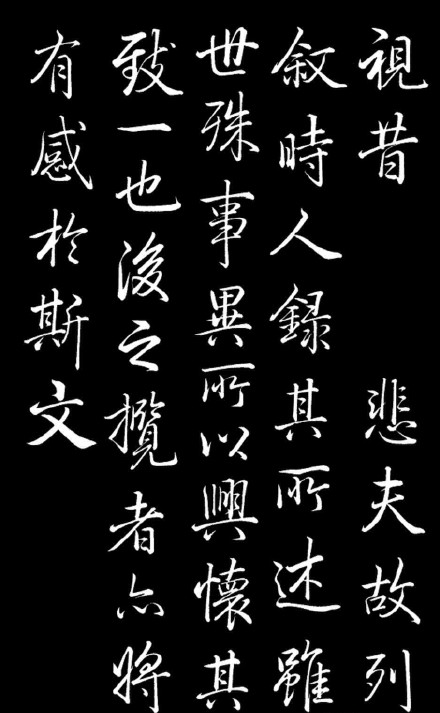 視昔悲夫故列
敘時人録其所述雖
世殊事異所以興懷其
致一也後之攬者亦將
有感於斯文